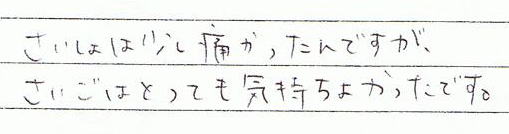 さいしょは少し痛かったんですが、
さいごはとっても気持ちよかったです。